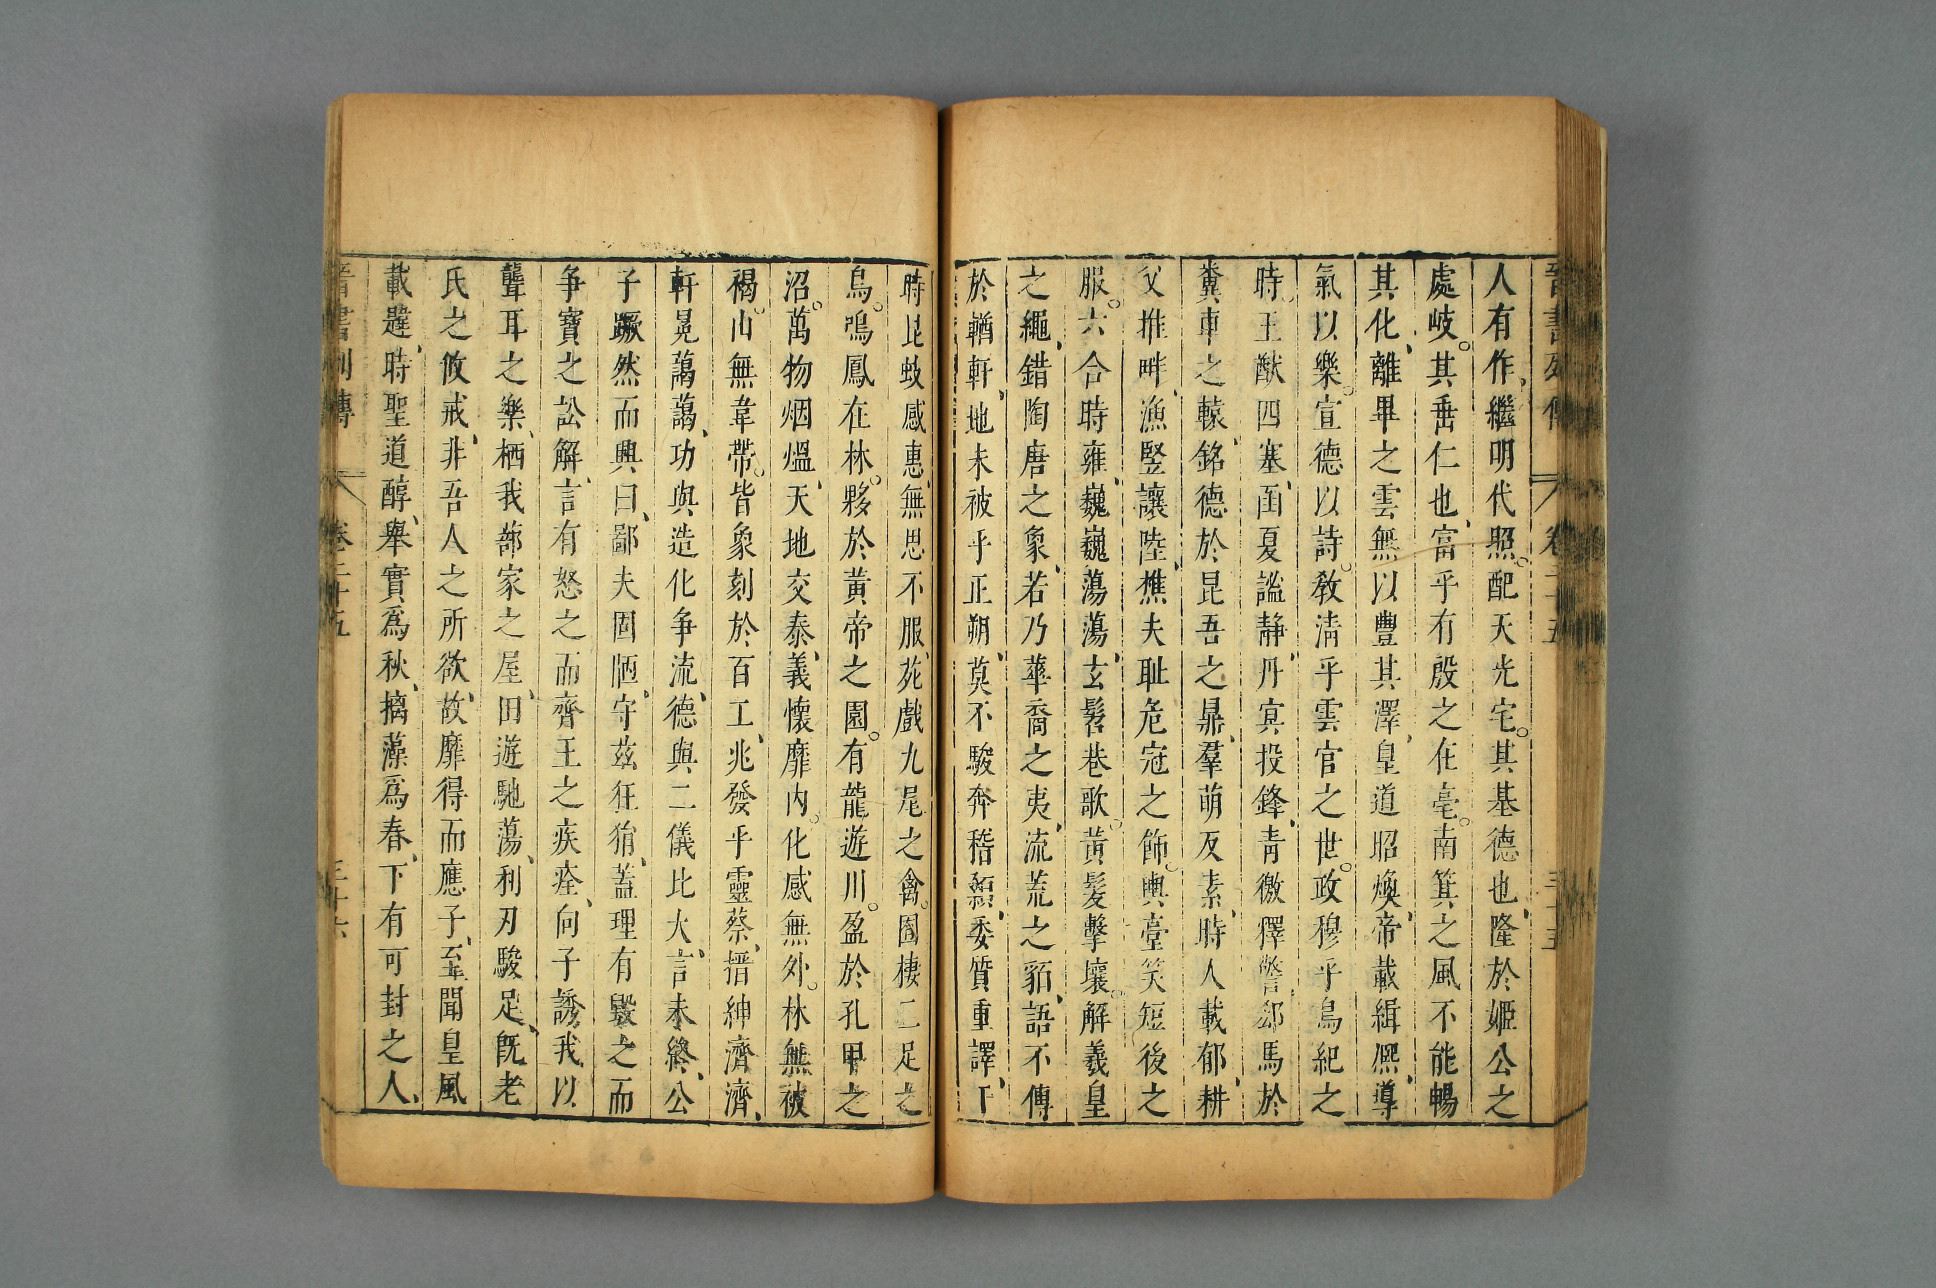 晉書列傳 卷二十五 三十五
人有作、繼明代照。配天光宅。其基德也、隆於姬公之
處岐。其垂仁也、富乎有殷之在亳。南箕之風不能暢
其化、離畢之雲無以豐其澤、皇道昭煥、帝載緝熙、導
氣以樂。宣德以詩。敎清乎雲官之世。政穆乎鳥紀之
時。王猷四塞、函夏謐静、丹㝠投鋒、青徼釋警、郄馬於
糞車之轅、銘德於昆吾之鼎、羣萌反素、時人載郁、耕
父推畔、漁竪讓陸、樵夫耻危冠之飾。輿臺笑短後之
服。六合時雍、巍巍蕩蕩、玄髫巷歌。黃髮擊壤。解羲皇
之繩、錯陶唐之象、若乃華裔之夷、流荒之貊、語不傳
於輶軒、地未被乎正朔、莫不駿奔稽顙、委質重譯、于
時昆蚑感惠、無思不服、苑戲九尾之禽。囿棲二足之
烏。鳴鳳在林。夥於黃帝之園。有龍遊川。盈於孔甲之
沼。萬物烟熅、天地交泰、義懷靡内。化感無外。林無被
褐。山無韋帶。皆象刻於百工、兆發乎靈蔡、搢紳濟濟、
軒冕藹藹、功與造化争流、德與二儀比大、言未終、公
子蹶然而興曰、鄙夫固陋、守兹狂狷、蓋理有毀之而
争寶之訟解、言有怒之而齊王之疾痊、向子誘我以
聾耳之樂、栖我蔀家之屋、田遊馳蕩、利刃駿足、旣老
氏之攸戒、非吾人之所欲、故靡得而應子、至聞皇風
載韙、時聖道醇、舉實爲秋、摛藻爲春、下有可封之人、
晉書列傳 卷二十五 三十六